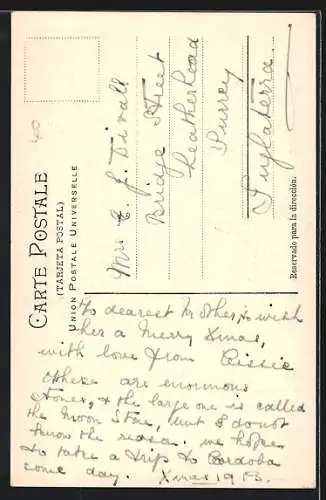 CARTE POSTALE
(TARJETA POSTAL)
UNION POSTALE UNIVERSELLE
Mrs C. J. Divall
Bridge Street
Leatherhead
Surrey
Inglaterra.
Reservado para la dirección.
To dearest Mother, to wish
her a Merry Xmas,
with love from Cissie
there are enormous
stones, & the large one is called
the Moon Stone, but I do not
know the reason. We hope
to take a trip to Cordoba
some day. Xmas 1913.